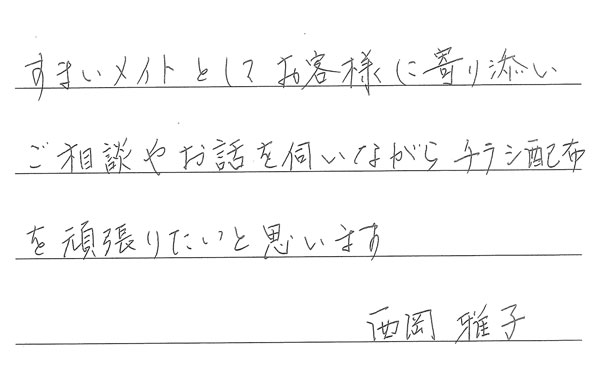 すまいメイトとしてお客様に寄り添い
ご相談やお話を伺いながらチラシ配布
を頑張りたいと思います
西岡 雅子